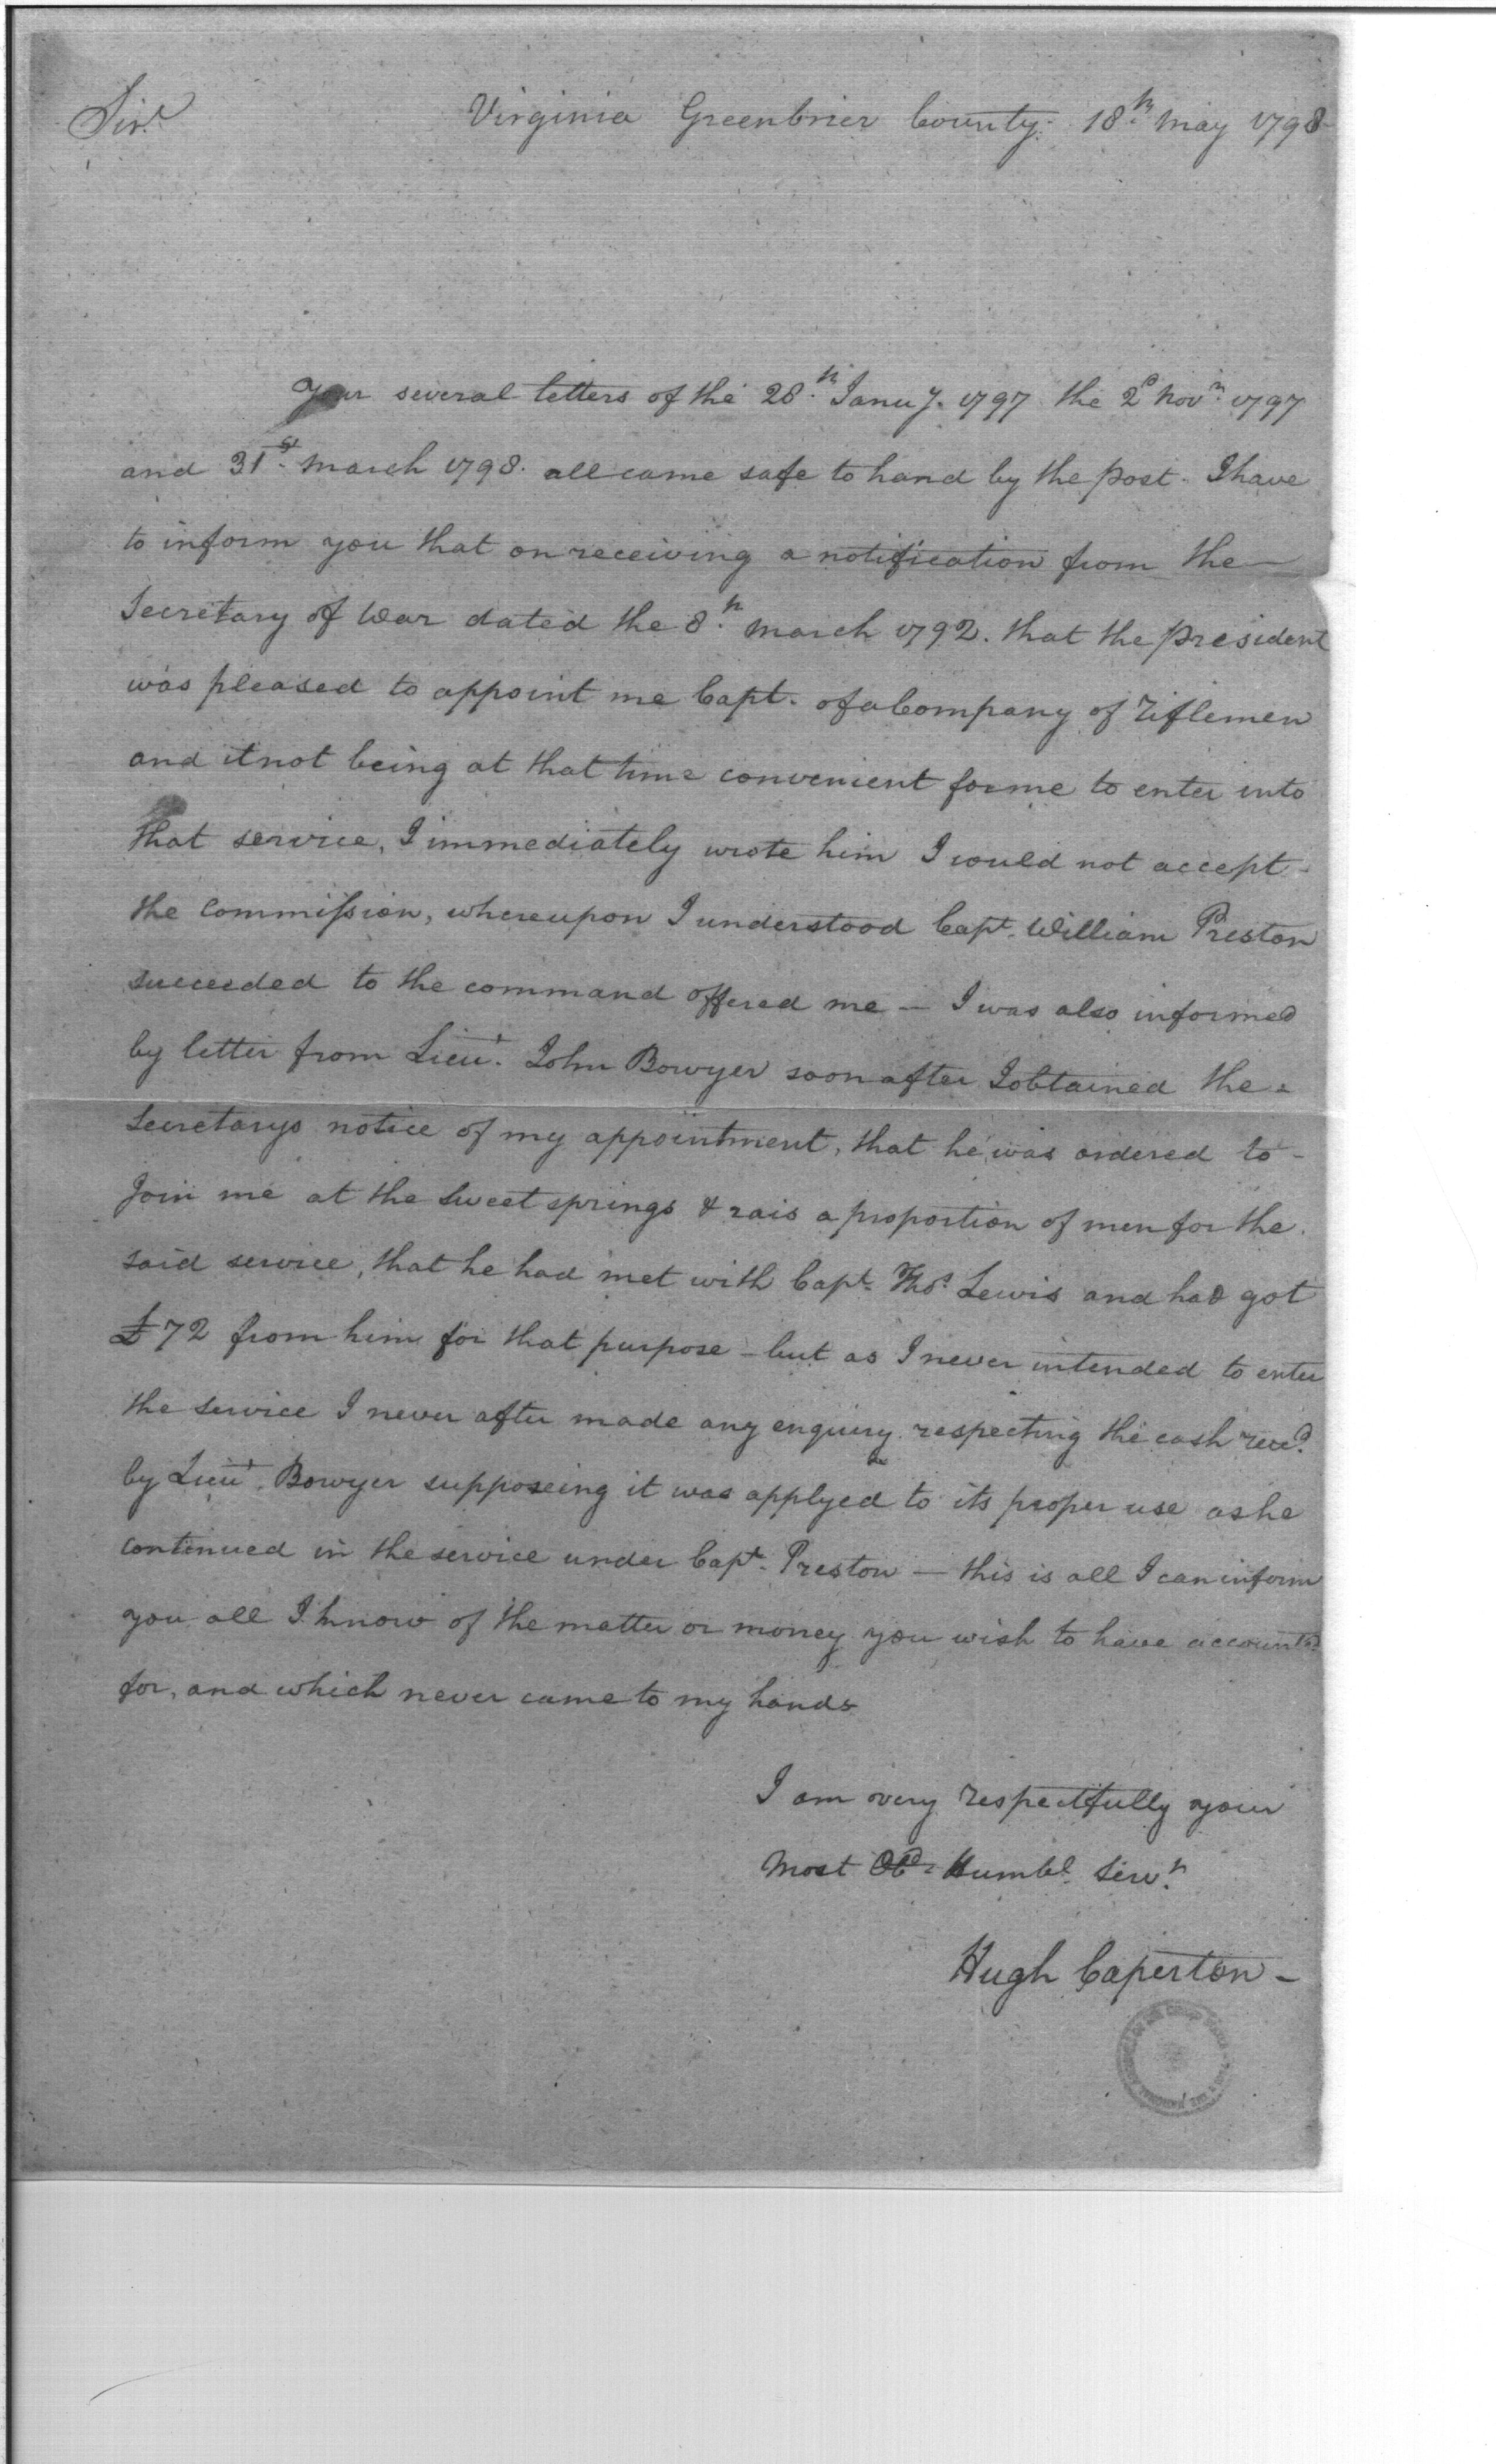 Sir.
Virginia Greenbrier County. 18th. may 1798
Your several letters of the 28th. Januy. 1797 the 2d Novr. 1797
and 31st. march 1798. all came safe to hand by the post. I have
to inform you that on receiving a notification from the
Secretary of War dated the 8th. march 1792. that the president
was pleased to appoint me Capt. of a Company of riflemen
and it not being at that time convenient for me to enter into
that service, I immediately wrote him I would not accept
the Commission, whereupon I understood Capt. William Preston
succeeded to the command offered me — I was also informed
by letter from Lieut. John Bowyer soon after I obtained the
Secretarys notice of my appointment, that he was ordered to
Join me at the Sweet springs & rais a proportion of men for the
said service, that he had met with Capt. Thos. Lewis and had got
£72 from him for that purpose – but as I never intended to enter
the service I never after made any enquiry respecting the cash recd.
by Lieut. Bowyer supposeing it was applyed to its proper use as he
continued in the service under Capt. Preston — this is all I can inform
you all I know of the matter or money you wish to have accounted
for, and which never came to my hands
I am very respectfully your
most Obd. Humbl. Servt.
Hugh Caperton –